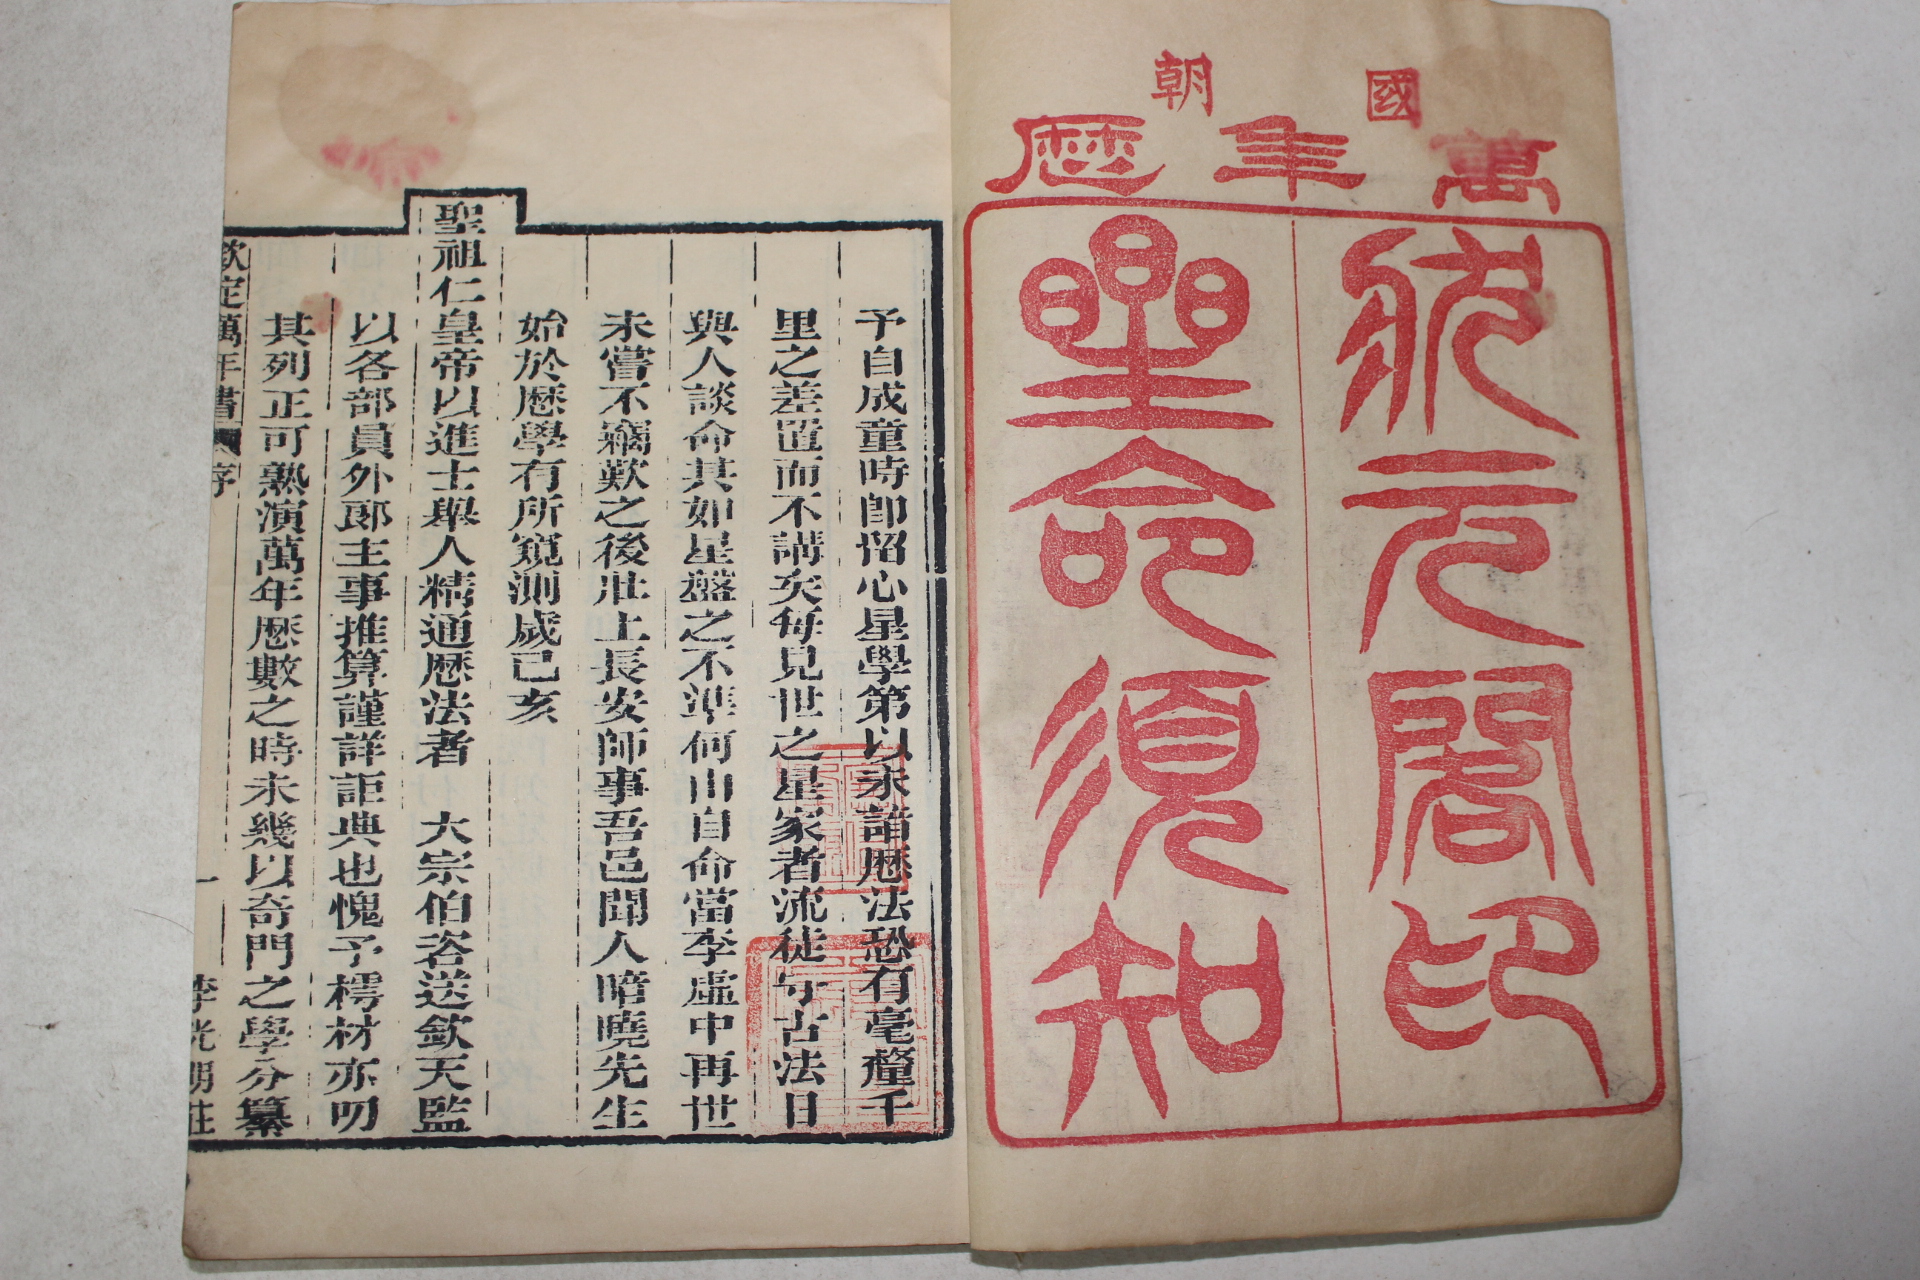 國朝
萬年歷
狀元閣印
星命須知
予自成童時卽留心星學第以未諳歷法恐有毫釐千
里之差置而不講矣每見世之星家者流徒守古法日
與人談命其如星盤之不準何由自命當李虛中再世
未嘗不竊歎之後壯上長安師事吾邑聞人暗曉先生
始於歷學有所窺測歲己亥
聖祖仁皇帝以進士舉人精通歷法者 大宗伯咨送欽天監
以各部員外郎主事推算謹詳詎典也愧予樗材亦叨
其列正可熟演萬年歷數之時未幾以奇門之學分纂
欽定萬年書 序 一 李光明莊